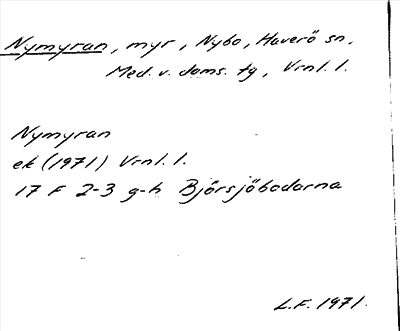 Nymyran, myr, Nybo, Haverö sn,
Med. v. doms. tg, Vrnl. l.
Nymyran
ek (1971) Vrnl. l.
17 F 2-3 g-h Björsjöbodarna
L.F. 1971.